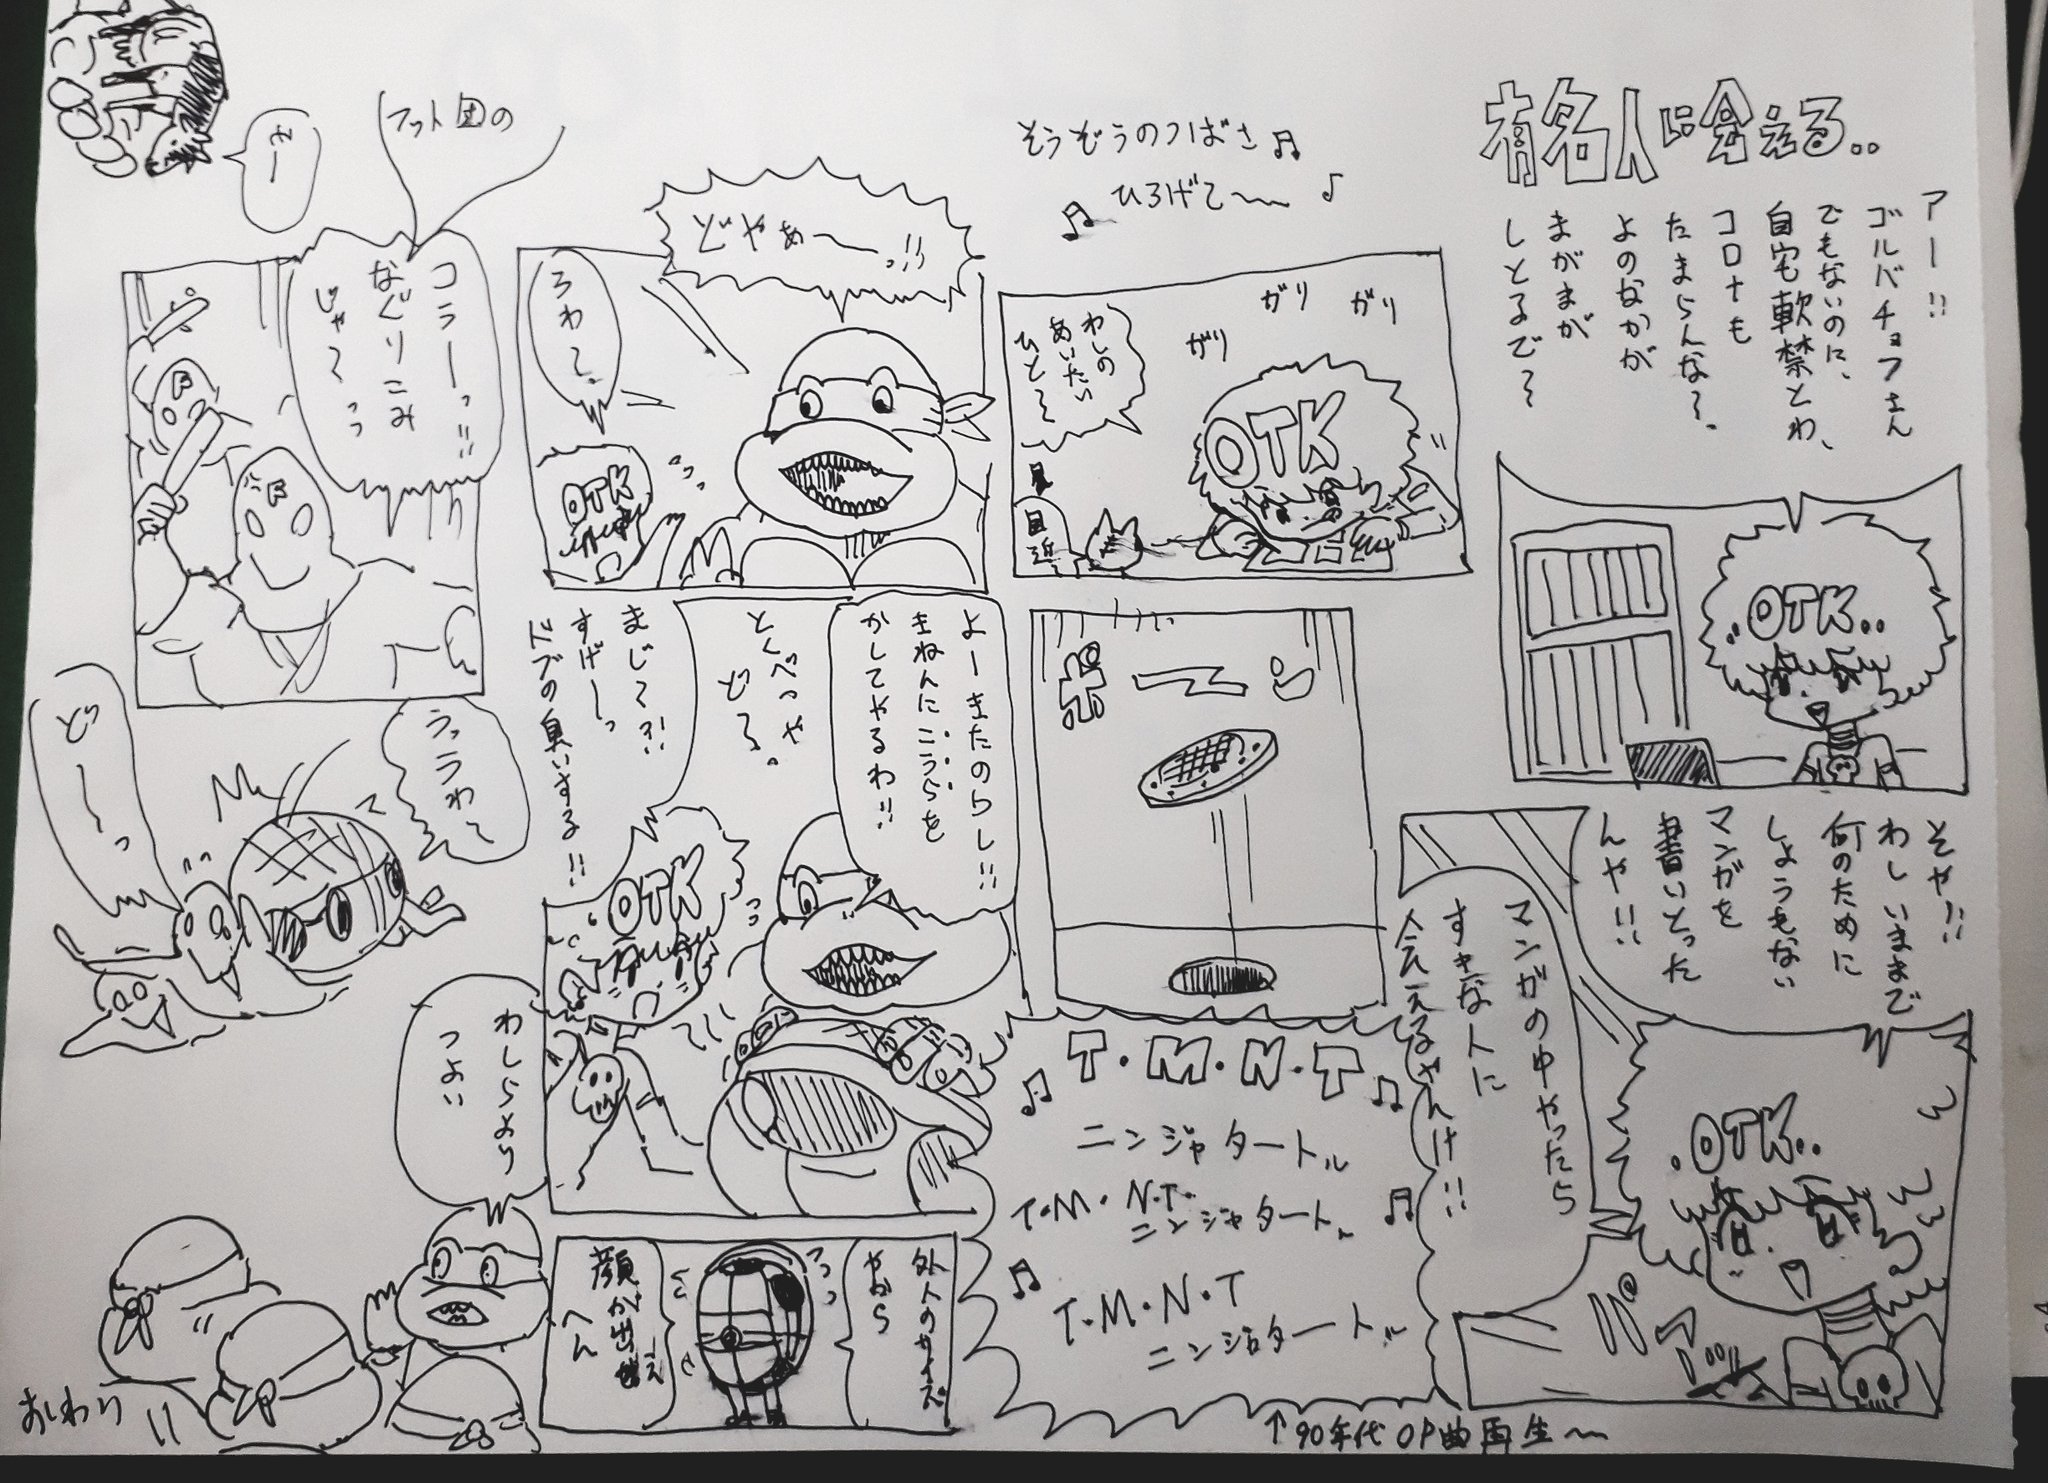 有名人に会える..
アー!!
ゴルバチョフさん
でもないのに、
自宅軟禁とわ、
コロナも
たまらんな〜。
よのなかが
まがまが
しとるで〜
OTK..
そや!!
わしいままで
何のために
しょうもない
マンガを
書いとった
んや!!
マンガの中やったら
すきな人に
会えるやんけ!!
.OTK..
パアッ
そうぞうのつばさ♫
♫ ひろげて〜 ♪
ガリ
ガリ
ガリ
わしの
あいたい
ひと〜
OTK
目
近
ポ
T・M・N・T
ニンジャタートル
T・M・N・T・
ニンジャタートル
T・M・N・T
ニンジャタートル
↑90年代OP曲再生〜
どやぁーっ!!
ろわ〜
OTK
よーきたのらし!!
きねんにこうらを
かしてやるわ!!
とくべつや
ど〜。
まじで?!
すげーっ
ドブの臭いする!!
OTK
外人のサイズ
やから
顔が出せえ
へん
フット団の
ミー
コラーっ!!
なぐりこみ
じゃ〜っ
F
F
うっうわ〜
どーっ
わしらより
つよい
おしわり